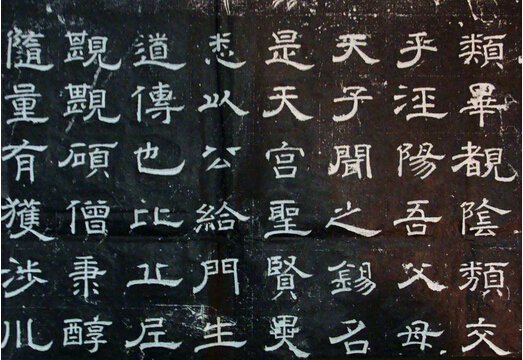 類畢覩陰類交
乎涇陽吾父母
天子聞之錫名
是天宮聖賢異
悉以公給門生
道傳也比丘尼
覬覬碩僧秉醇
隨量有獲涉川